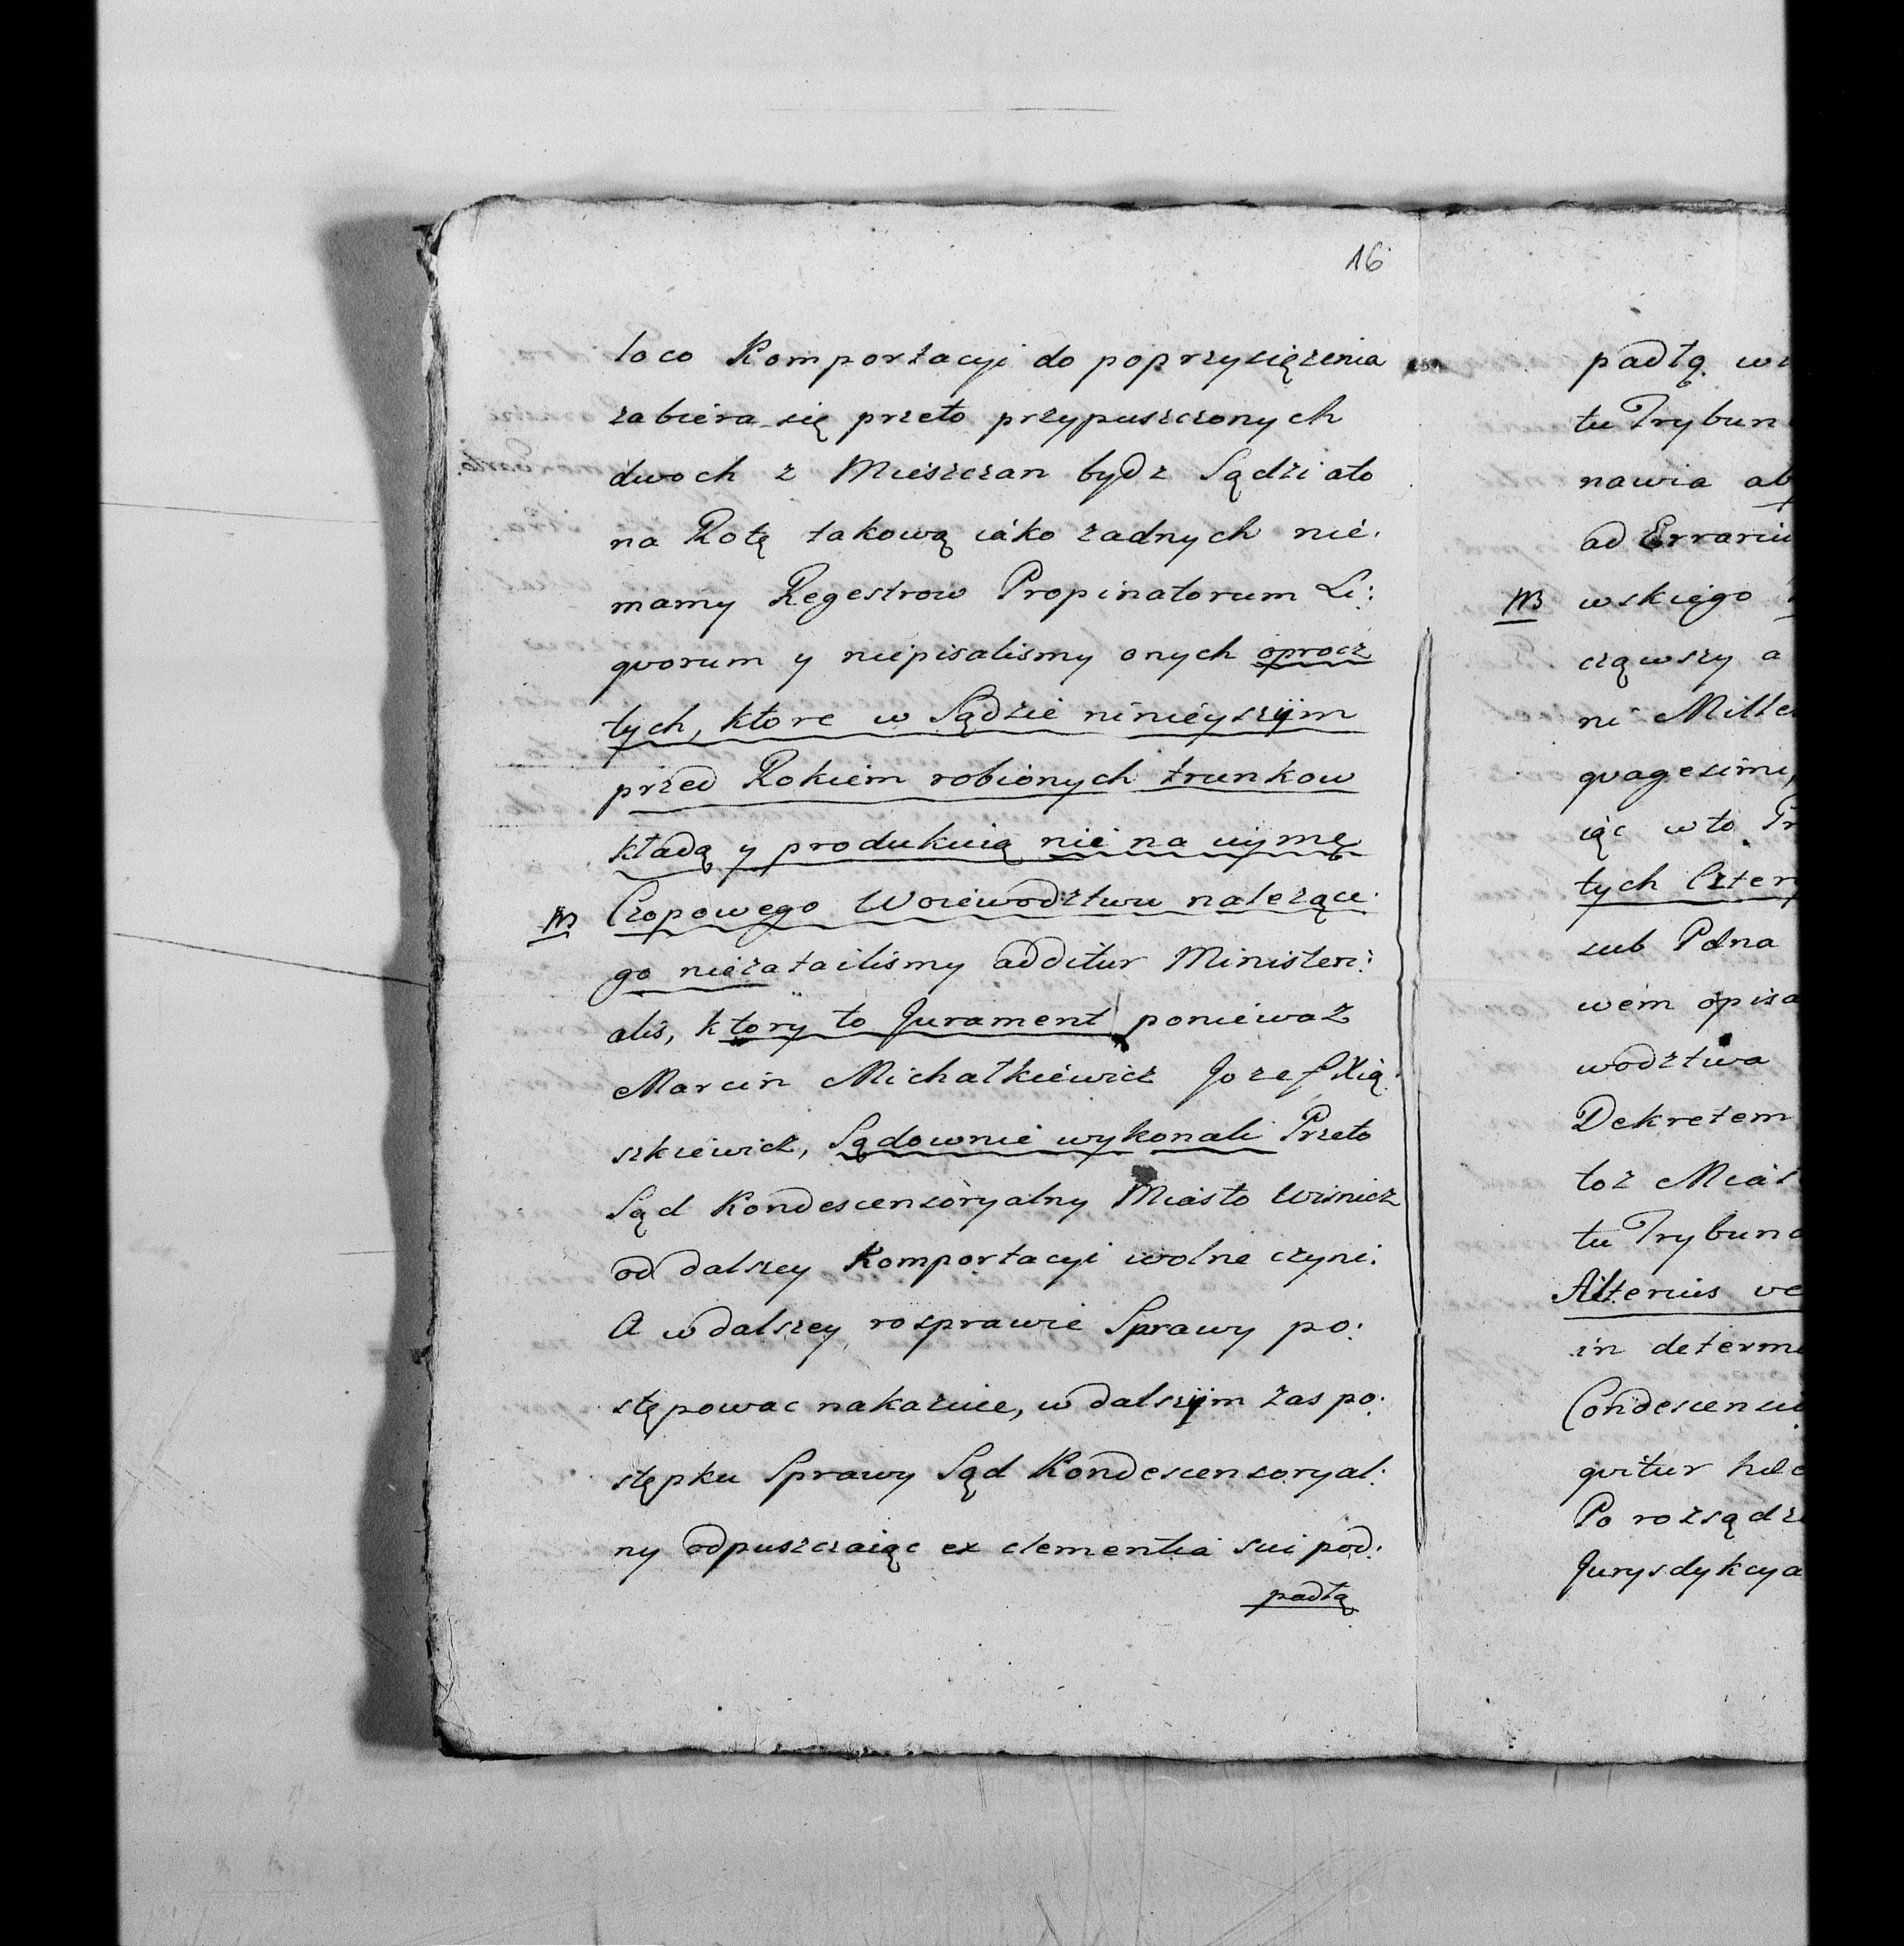 16
loco Komportacyi do poprzysiężenia
zabiera się przeto przypuszczonych
dwoch z Mieszczan bydz Sądziało
na Rotę takową iáko żadnych nie.
mamy Regestrow Propinatorum Li:
qvorum y niepisalismy onych oprocz
tych, ktore w Sądzie ninieyszÿm
przed Rokiem robionych trunkow
kładą y produkuią nie na uymę
NB Czopowego Woiewodztwu należące.
go niezataiłismy additur Ministeri:
alis, ktory to Jurament ponieważ
Marcin Michałkiewicz Jozef Xią:
szkiewicz, Sądownie wykonali Przeto
Sąd Kondescensoryalny Miasto Wisnicz
od dalszey Komportacyi wolne czyni.
A w dalszey rosprawie Sprawy po:
stępowac nakazuie, w dalszÿm zas po:
stępku Sprawy Sąd Kondescensoryal:
ny odpuszczaiąc ex clementia sui pod:
padłą
padłą w
tu Trybun
nawia ab
ad Errariu
NB wskiego
cząwszy a
ni Mille
qvagesimi,
iąc w to Pr
tych Czter
sub Pdna
wem opisa
wodztwa
Dekretem
toż Mias
tu Trybuna
Alterius ve
in determi
Condescensi
qvitur
Po rozsądz
Jurysdykcya